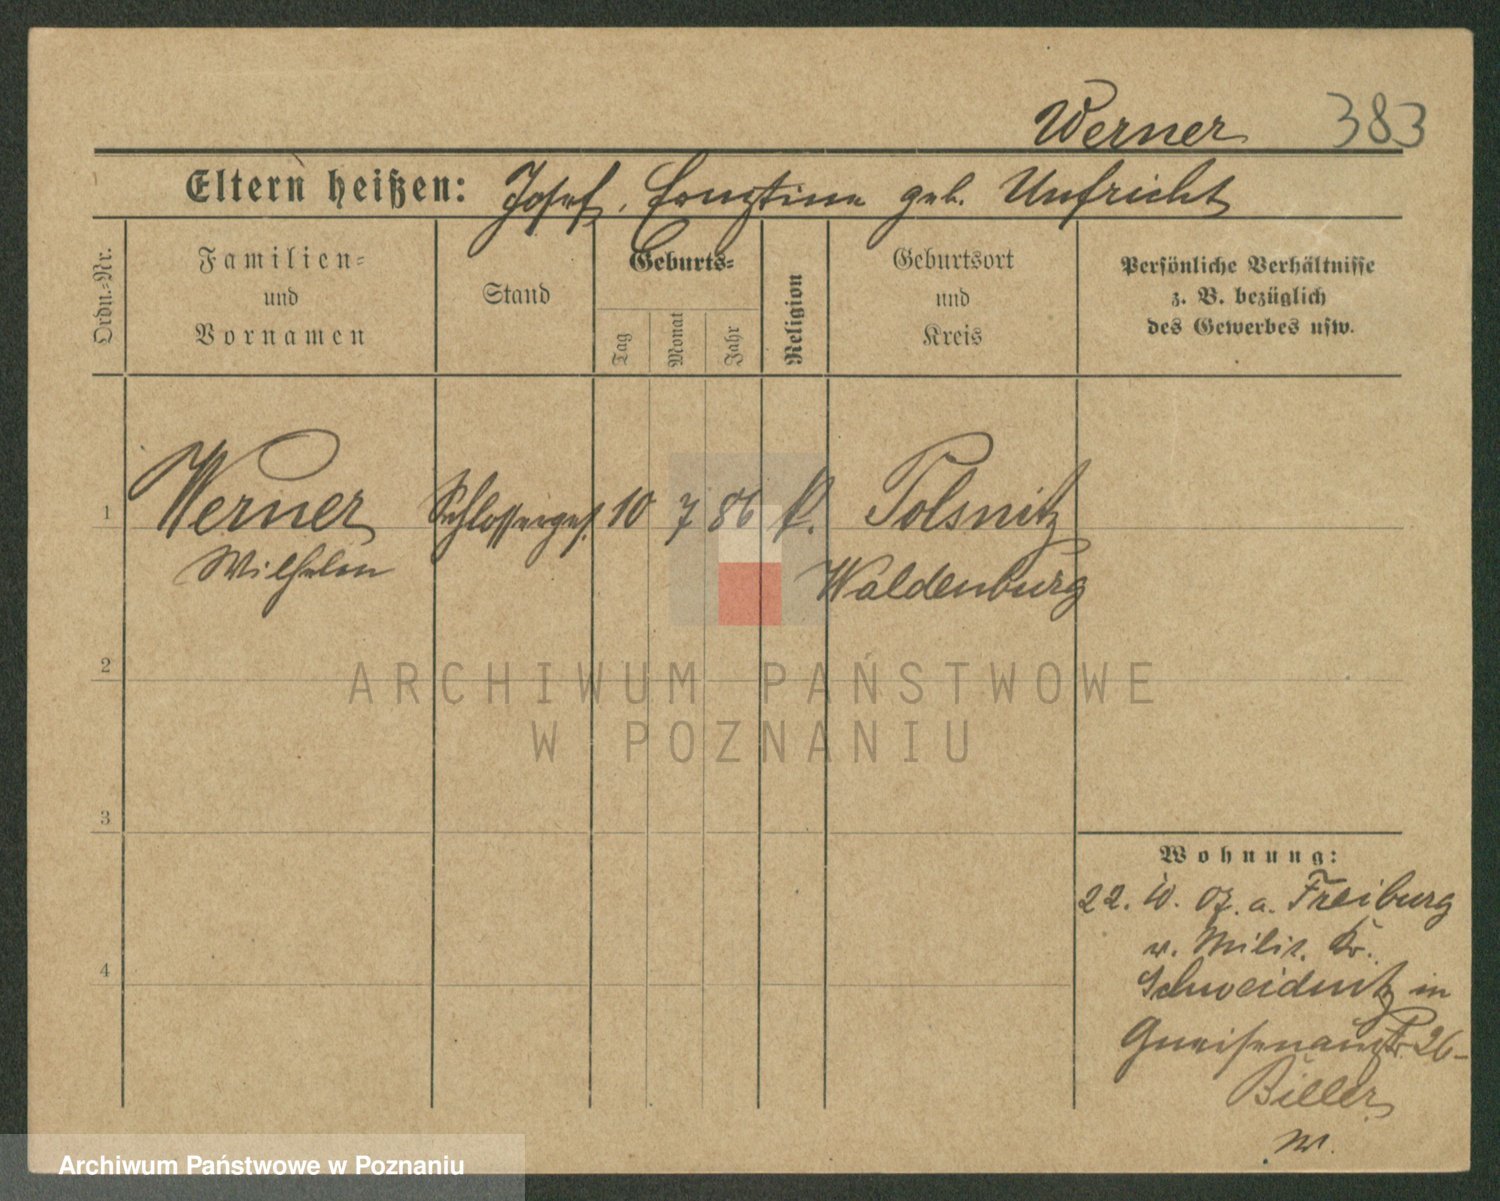 Werner 383
Eltern heißen: Josef, Ernstine geb. Unfricht
Ordn.-Nr.
Familien-
und
Vornamen
Stand
Geburts-
Tag
Monat
Jahr
Religion
Geburtsort
und
Kreis
Persönliche Verhältnisse
z. B. bezüglich
des Gewerbes usw.
1 Werner Schlosserges. 10 7 86 k. Polsnitz
Wilhelm Waldenburg
2
ARCHIWUM PAŃSTWOWE
W POZNANIU
3
Wohnung:
22. a. Freiburg
Kr.
4
Schweidnitz in
Gneisenaustr. 26
Biller
Archiwum Państwowe w Poznaniu